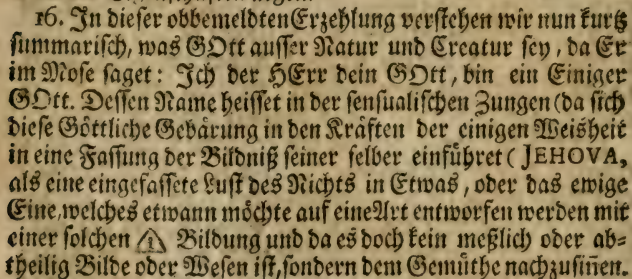 16. Jn dieser obbemeldten Erzehlung verstehen wir nun kurtz
summarisch, was GOtt ausser Natur und Creatur sey, da Er
im Mose saget: Jch der HErr dein GOtt, bin ein Einiger
GOtt. Dessen Name heisset in der sensualischen Zungen (da sich
diese Göttliche Gebärung in den Kräften der einigen Weisheit
in eine Fassung der Bildniß seiner selber einführet ( JEHOVA,
als eine eingefassete Lust des Nichts in Etwas, oder das ewige
Eine, welches etwann möchte auf eine Art entworfen werden mit
einer solchen Bildung und da es doch kein meßlich oder ab-
theilig Bilde oder Wesen ist, sondern dem Gemüthe nachzusinen.